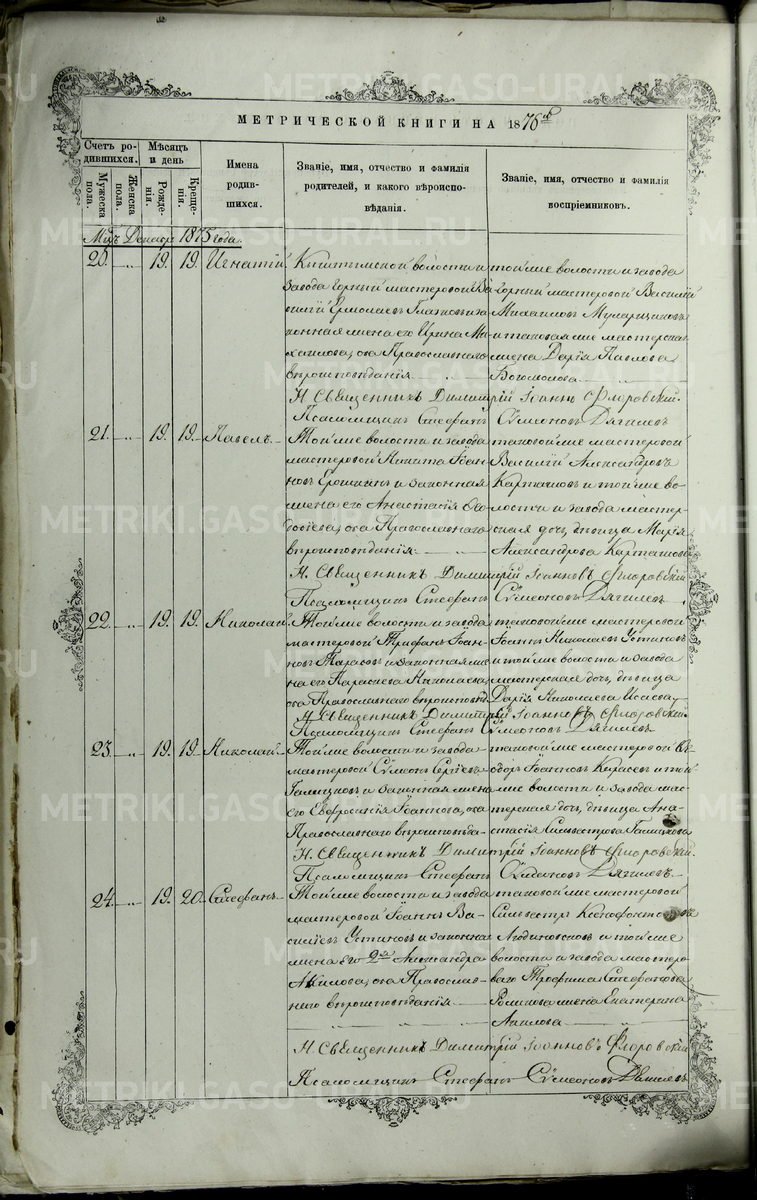 МЕТРИЧЕСКОЙ КНИГИ НА 1876й
Счетъ родившихся.
Мужеска пола.
Женска пола.
Мѣсяцъ и день
Рожденія.
Крещенія.
Имена родившихся.
Званіе, имя, отчество и фамилія родителей, и какого вѣроисповѣданія.
Званіе, имя, отчество и фамилія воспріемниковъ.
Декабр 1875 года.
20. „ 19. 19. Игнатій.
Кыштымской волости и
завода горный мастеровой Ва-
силій Ермолаевъ и за
конная жена его Ирина Ми-
хаилова, оба Православнаго
вѣроисповѣданія
той же волости и завода
горный мастеровой Василій
Михаиловъ
и таковая же мастерская
жена Дарія Павлова
Богомолова
Н. Священникъ Димитрій Іоанновъ Флоровскій.
Псаломщикъ Стефанъ Сѵмеоновъ Дягилевъ
21. „ 19. 19. Павелъ.
Той же волости и завода
мастеровой Никита Іоан-
новъ Ерошкинъ и законная
жена его Анастасія Ѳео-
досіева, оба Православнаго
вѣроисповѣданія
таковой же мастеровой
Василій Александровъ
Карташовъ и той же во-
лости и завода мастер-
ская дочь, дѣвица Марія
Александрова Карташова
Н. Священникъ Димитрій Іоанновъ Флоровскій
Псаломщикъ Стефанъ Сѵмеоновъ Дягилевъ
22. „ 19. 19. Николай.
Той же волости и завода
мастеровой Трифонъ Іоан-
новъ Тарасовъ и законная же-
на его Параскева Николаева,
оба Православнаго вѣроисповѣд.
таковой же мастеровой
Іоаннъ Николаевъ Устиновъ
и той же волости и завода
мастерская дочь, дѣвица
Дарія Николаева Исаева
Н. Священникъ Димитрій Іоанновъ Флоровскій.
Псаломщикъ Стефанъ Сѵмеоновъ Дягилевъ
23. „ 19. 19. Николай.
Той же волости и завода
мастеровой Сѵмеонъ Сергіевъ
Галицковъ и законная жена
его Евфросинія Іоаннова, оба
Православнаго вѣроисповѣда-
таковой же мастеровой Ѳе-
одоръ Іоанновъ Карасевъ и той
же волости и завода мас-
терская дочь, дѣвица Ана-
стасія Сильвестрова Галицкова
Н. Священникъ Димитрій Іоанновъ Флоровскій.
Псаломщикъ Стефанъ Сѵмеоновъ Дягилевъ
24. „ 19. 20. Стефанъ
Той же волости и завода
мастеровой Іоаннъ Ва-
силіевъ Устиновъ и законная
жена его 2го Александра
Акилова, оба Православ-
наго вѣроисповѣданія
таковой же мастеровой
Сильвестръ Ксенофонтовъ
и той же
волости и завода мастеро
ваго Трофима Стефанова
жена Екатерина
Акилова
Н. Священникъ Димитрій Іоанновъ Флоровскій
Псаломщикъ Стефанъ Сѵмеоновъ Дягилевъ
METRIKI.GASO-URAL.RU